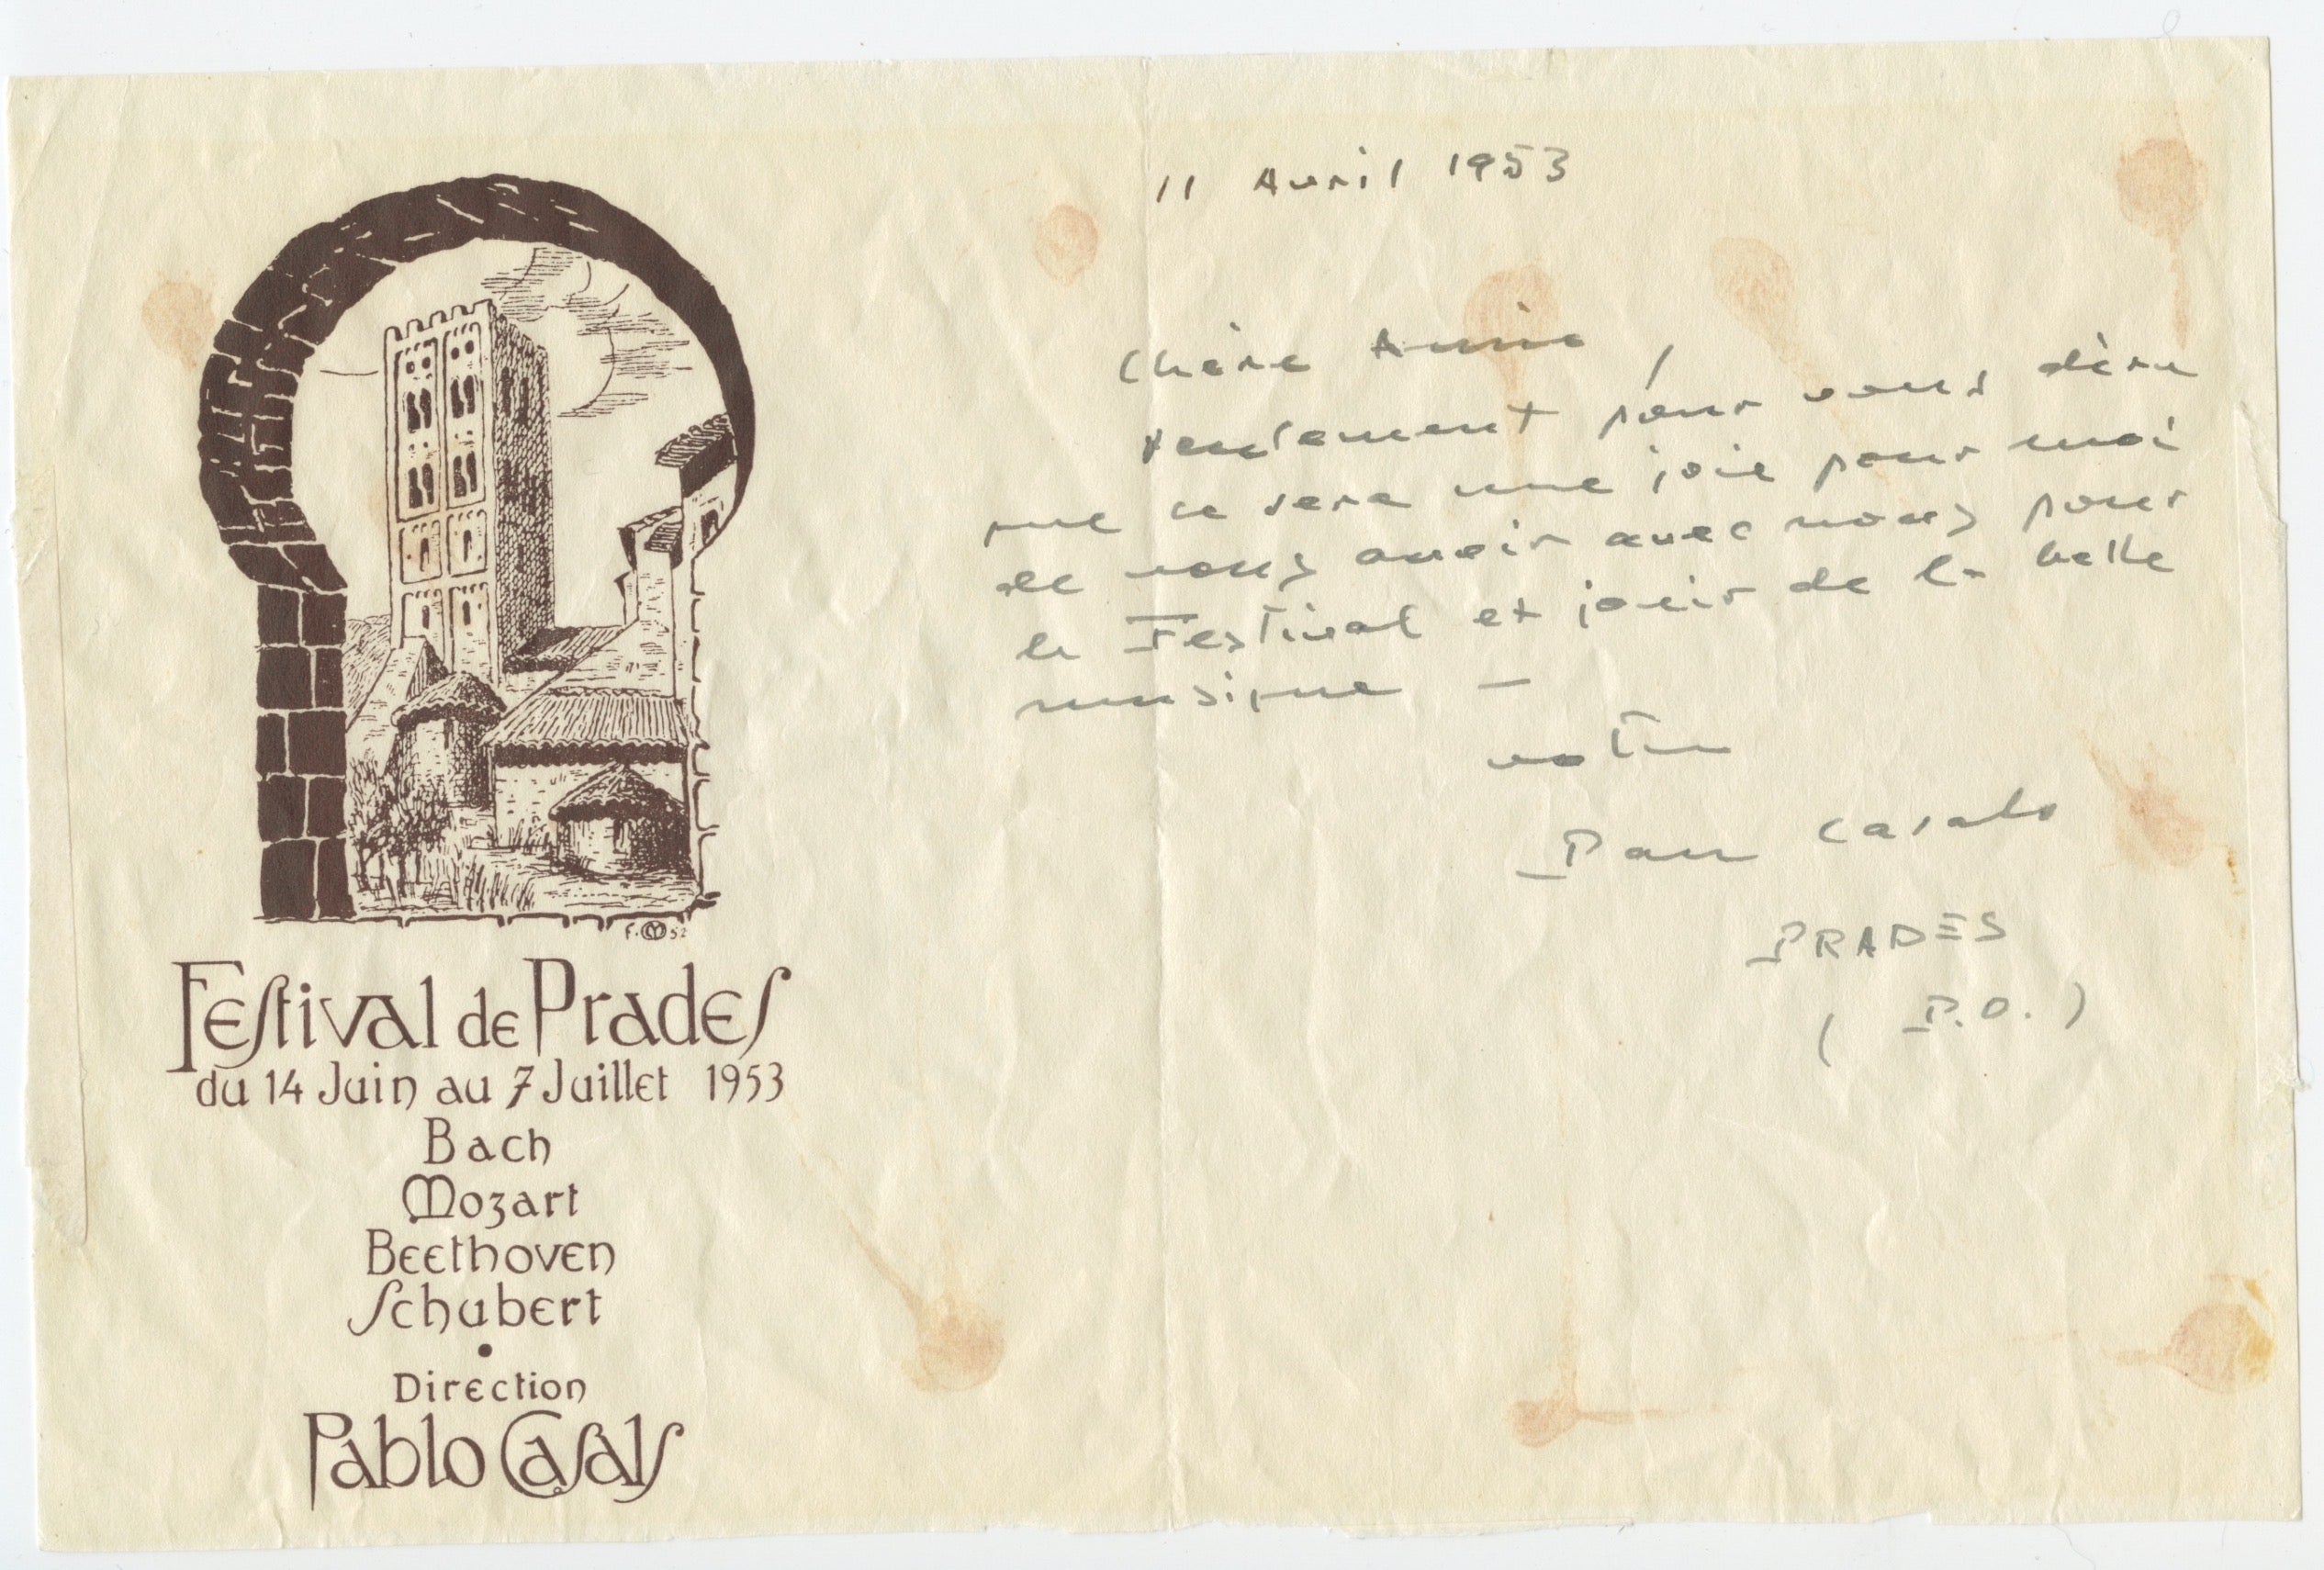 F. M 52
Festival de Prades
du 14 Juin au 7 Juillet 1953
Bach
Mozart
Beethoven
Schubert
•
Direction
Pablo Casals
11 Avril 1953
Chère Annie,
seulement pour vous dire
que ce sera une joie pour moi
de vous avoir avec nous pour
le Festival et jouir de la belle
musique —
votre
Pau Casals
PRADES
( P.O. )